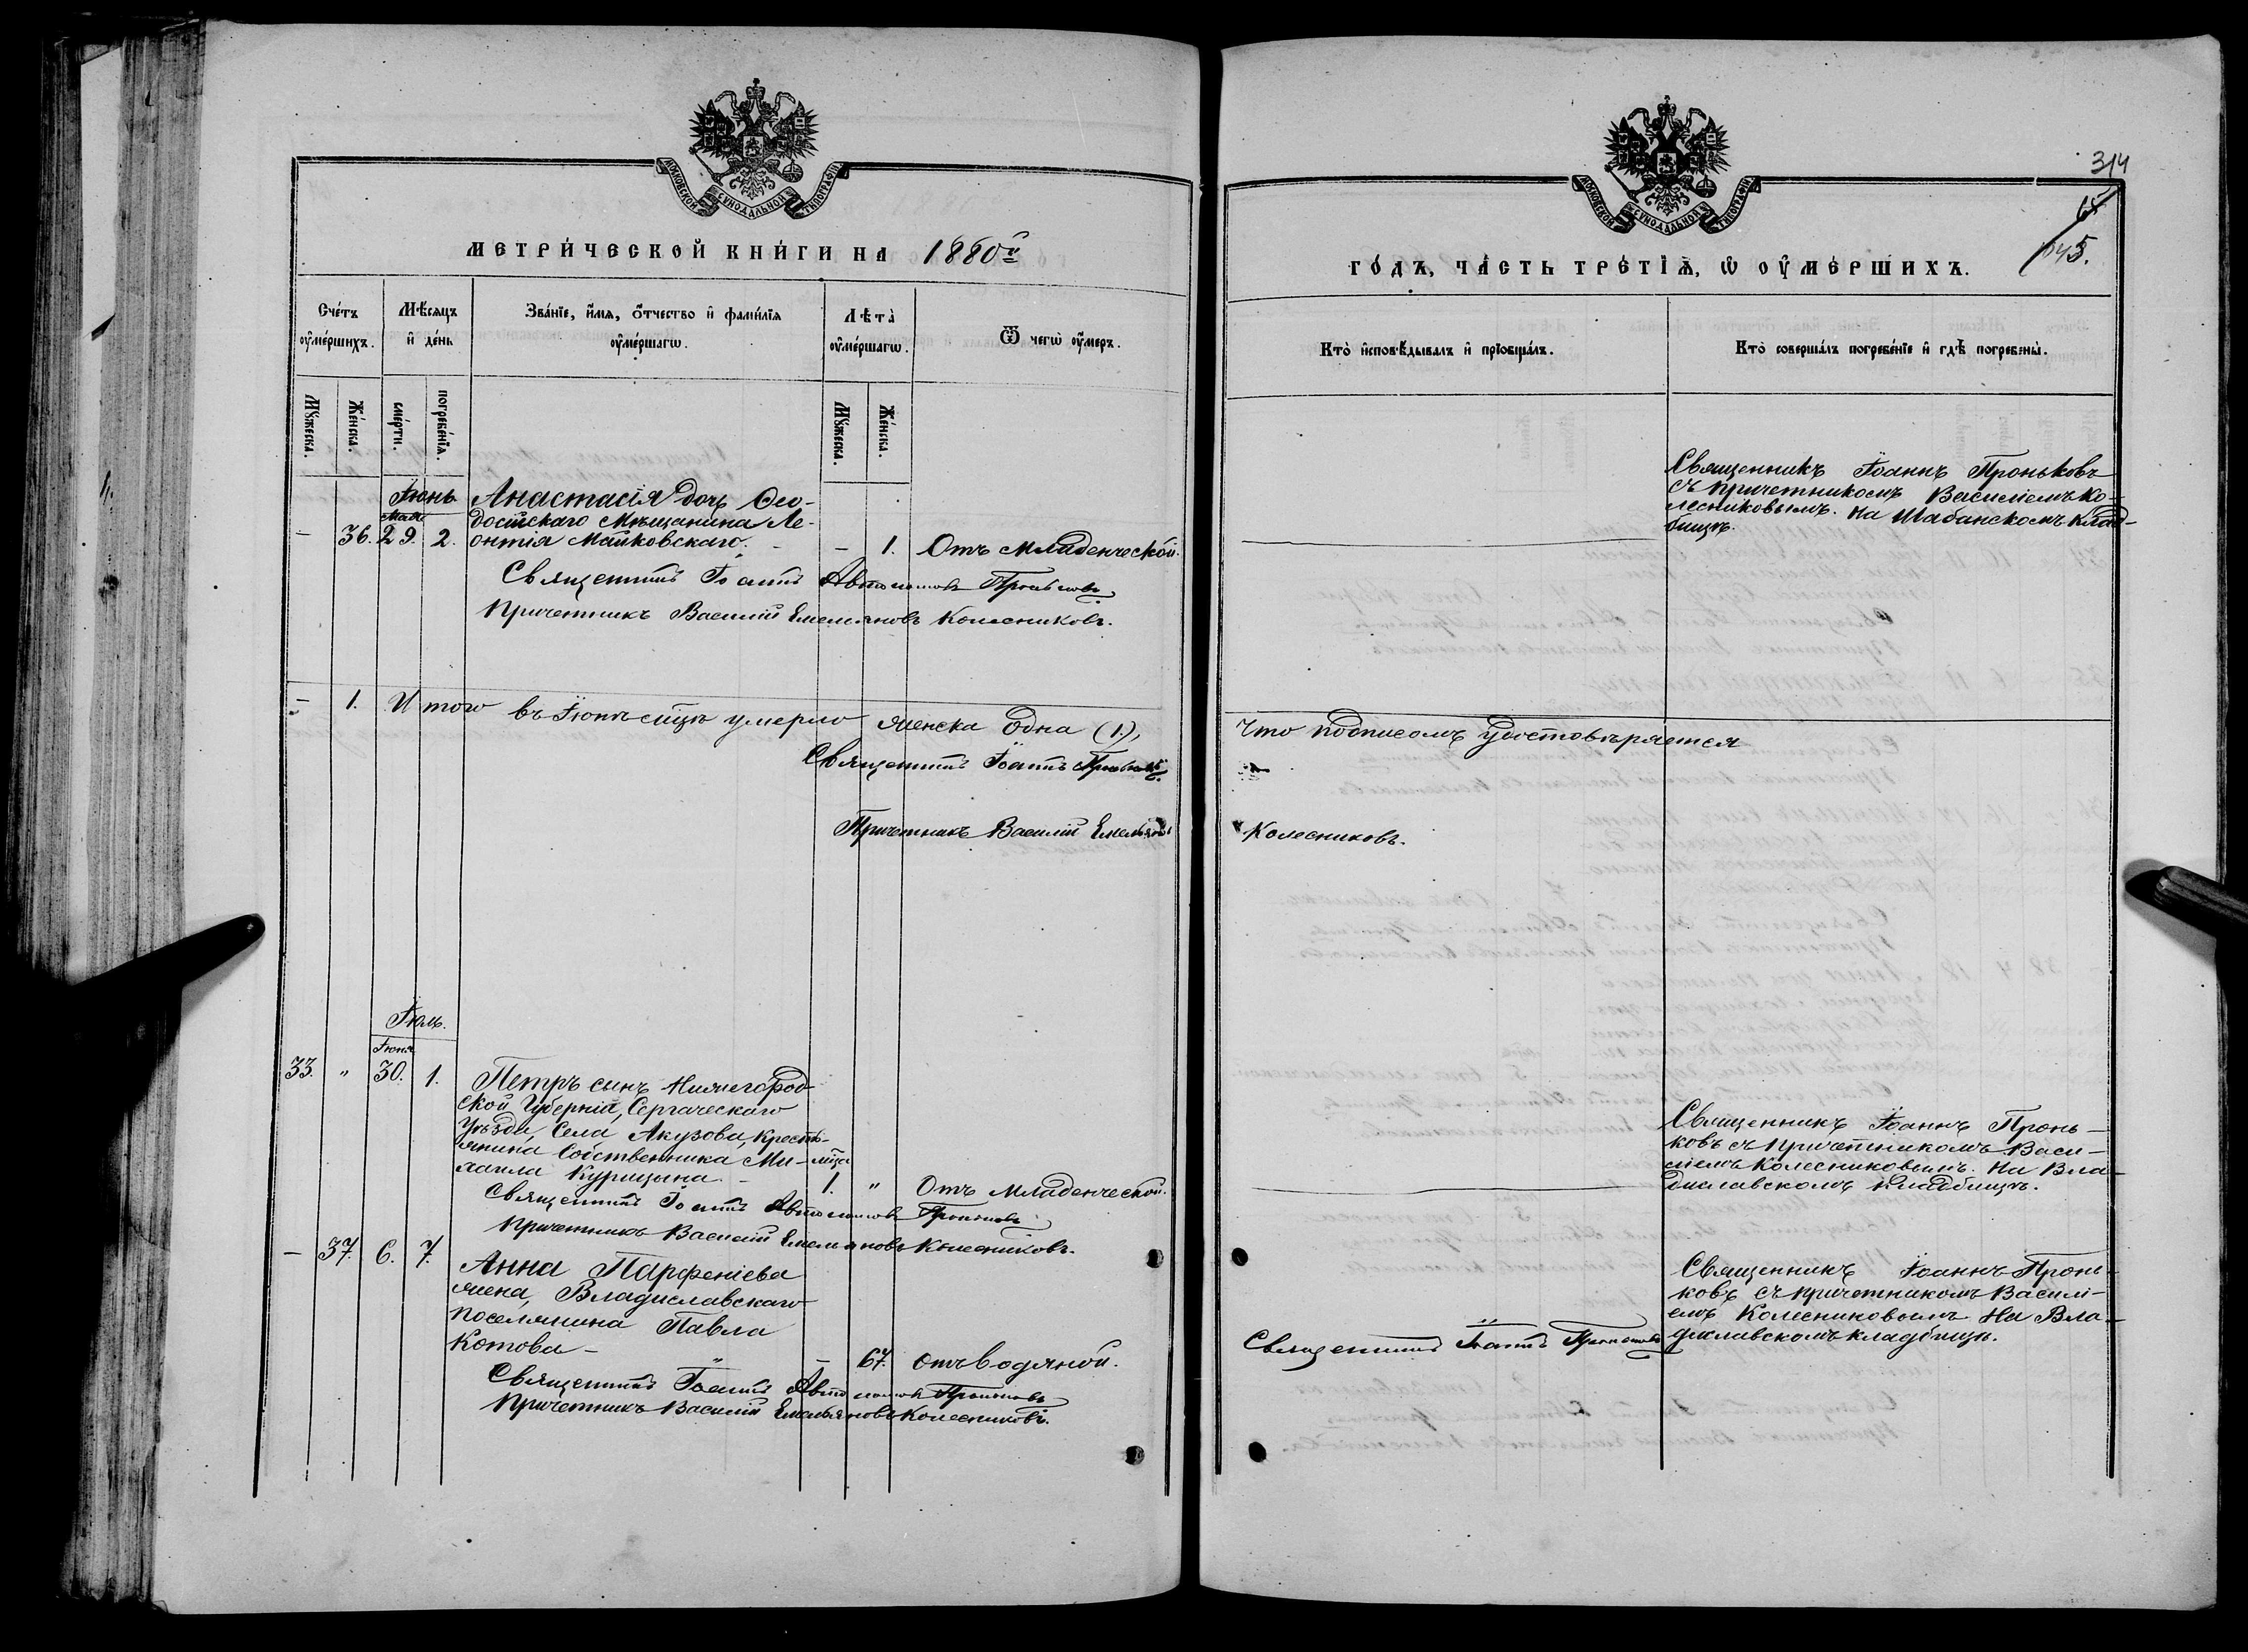 МОСКОВСКОЙ СУНОДАЛЬНОЙ ТѴПОГРАФІИ
МЕТРИ́ЧЕСКОЙ КНИ́ГИ НА 1880й
Сче́тъ ᲂу҆ме́ршихъ.
Мѣ́сяцъ и҆ де́нь
Зва́нїе, и҆́мѧ, ѻ҆́тчество и҆ фами́лїѧ ᲂу҆ме́ршагѡ.
Лѣта̀ ᲂу҆ме́ршагѡ.
Ѿ чегѡ̀ ᲂу҆́меръ.
Мꙋ́жеска.
Же́нска.
сме́рти.
погребе́нїѧ.
Мꙋ́жеска.
Же́нска.
Іюнь
Мая
Анастасія дочь Ѳео-
досійскаго Мѣщанина Ле-
– 36. 29. 2. онтія Майковскаго. – – 1. Отъ младенческой.
Священникъ Іоаннъ Автономовъ Проньковъ
Причетникъ Василій Емельяновъ Колесниковъ.
– 1. Итого въ Іюнѣ мцѣ умерло женска одна (1),
Священникъ Іоаннъ Проньковъ
Причетникъ Василій Емельяновъ
Іюль.
Іюня
33. " 30. 1. Петръ сынъ Нижегород-
ской Губерніи, Сергаческаго
Уѣзда, Села Акузова, Кресть-
янина Собственника Ми- мца
хаила Курицына. – 1. " Отъ младенческой.
Священникъ Іоаннъ Автономовъ Проньковъ
Причетникъ Василій Емельяновъ Колесниковъ.
– 37. 6. 7. Анна Парфеніева
жена, Владиславскаго
поселянина Павла
Котова – – 67. отъ водяной.
Священникъ Іоаннъ Автономовъ Проньковъ
Причетникъ Василій Емельяновъ Колесниковъ.
314
МОСКОВСКОЙ СУНОДАЛЬНОЙ ТѴПОГРАФІИ
ГО́ДЪ, ЧА́СТЬ ТРЕ́ТЇѦ, Ѡ҆ ОУ҆МЕ́РШИХЪ.
Кто̀ и҆сповѣ́дывалъ и҆ прїобща́лъ.
Кто̀ соверша́лъ погребе́нїе и҆ гдѣ̀ погребены̀.
Священникъ Іоаннъ Проньковъ
съ причетникомъ Василіемъ Ко-
лесниковымъ. На Шабанскомъ клад-
бищѣ.
Что подписомъ удостовѣряется
Колесниковъ.
Священникъ Іоаннъ Пронь-
ковъ съ причетникомъ Васи-
ліемъ Колесниковымъ. На Вла-
диславскомъ кладбищѣ.
Священникъ Іоаннъ Пронь-
ковъ съ причетникомъ Василі-
емъ Колесниковымъ. На Вла-
диславскомъ кладбищѣ.
Священникъ Іоаннъ Проньковъ